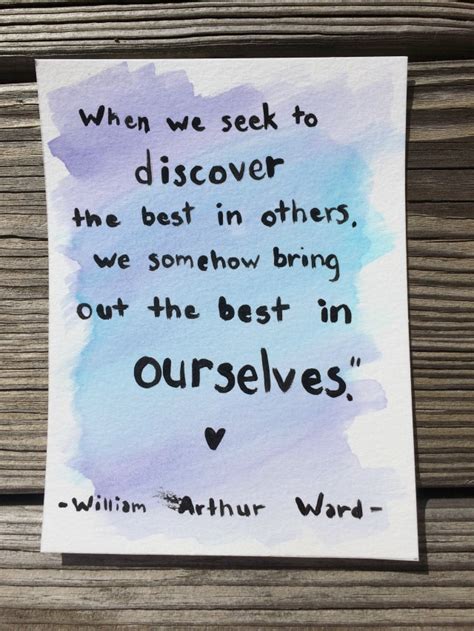 When we seek to
discover
the best in others,
we somehow bring
out the best in
ourselves."
♥
-William Arthur Ward-